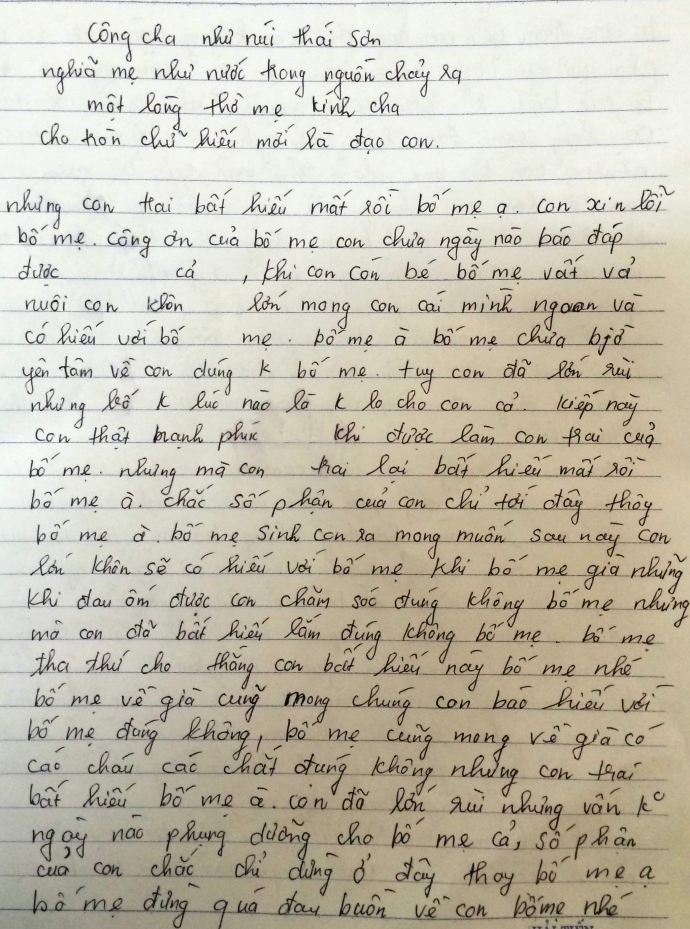 Công cha như núi thái sơn
nghiã mẹ như nước trong nguồn chảy ra
một lòng thờ mẹ kính cha
cho tròn chữ hiếu mới là đạo con.
nhưng con trai bất hiếu mất rồi bố mẹ ạ. con xin lỗi
bố mẹ. công ơn của bố mẹ con chưa ngày nào báo đáp
được cả, khi con còn bé bố mẹ vất vả
nuôi con khôn lớn mong con cái mình ngoan và
có hiếu với bố mẹ. bố mẹ à bố mẹ chưa bjờ
yên tâm về con đúng k bố mẹ. tuy con đã lớn rùi
nhưng bố k lúc nào là k lo cho con cả. kiếp này
con thật hạnh phúc khi được làm con trai của
bố mẹ. nhưng mà con trai lại bất hiếu mất rồi
bố mẹ à. chắc số phận của con chỉ tới đây thôy
bố mẹ à. bố mẹ sinh con ra mong muốn sau này con
lớn khôn sẽ có hiếu với bố mẹ khi bố mẹ già những
khi đau ốm được con chăm sóc đúng không bố mẹ nhưng
mà con đã bất hiếu lắm đúng không bố mẹ. bố mẹ
tha thứ cho thằng con bất hiếu này bố mẹ nhé
bố mẹ về già cũng mong chúng con báo hiếu với
bố mẹ đúng không, bố mẹ cũng mong về già có
các cháu các chắt đúng không nhưng con trai
bất hiếu bố mẹ à. con đã lớn rùi nhưng vẫn k°
ngày nào phụng dưỡng cho bố mẹ cả, số phận
của con chắc chỉ dừng ở đây thoy bố mẹ ạ
bố mẹ đừng quá đau buồn về con bố mẹ nhé